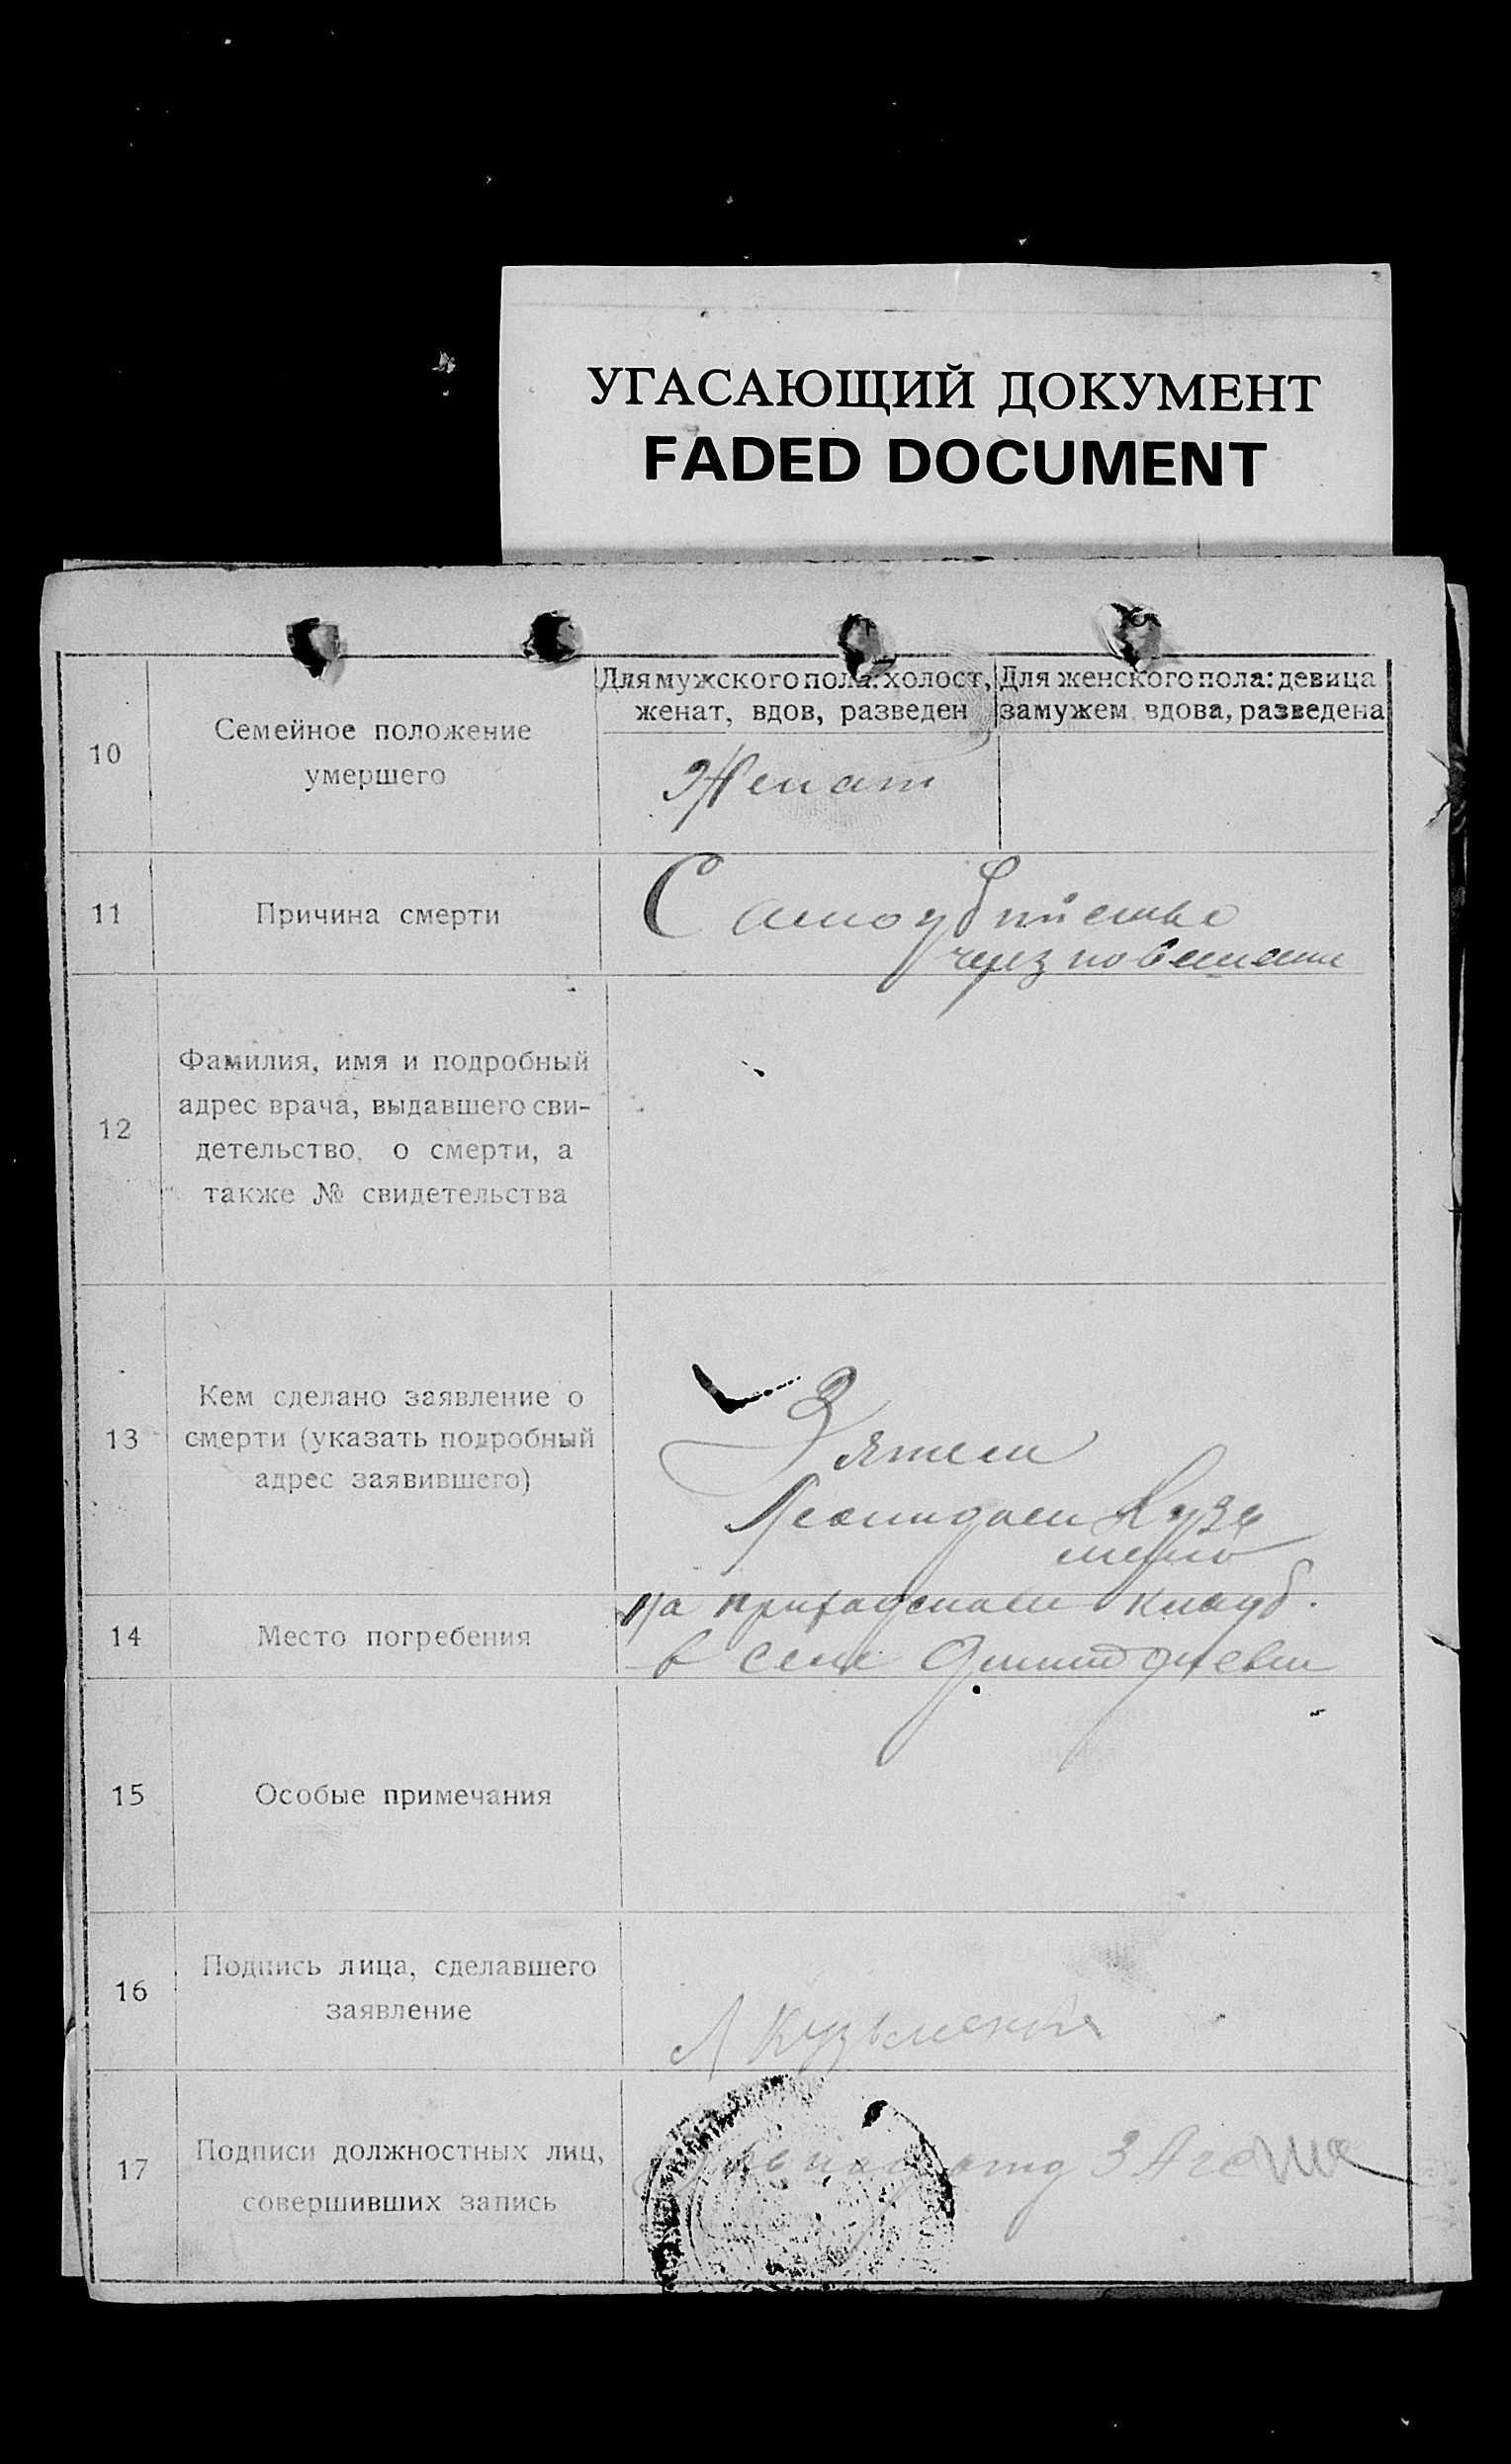 УГАСАЮЩИЙ ДОКУМЕНТ
FADED DOCUMENT
10
Семейное положение
умершего
Для мужского пола: холост,
женат, вдов, разведен
Для женского пола: девица
замужем, вдова, разведена
Женат
11
Причина смерти
Самоубийство
через повешение
12
Фамилия, имя и подробный
адрес врача, выдавшего сви-
детельство, о смерти, а
также № свидетельства
13
Кем сделано заявление о
смерти (указать подробный
адрес заявившего)
Зятем
Леонидом
14
Место погребения
на приходском кладб.
в селе
15
Особые примечания
16
Подпись лица, сделавшего
заявление
Л
17
Подписи должностных лиц,
совершивших запись